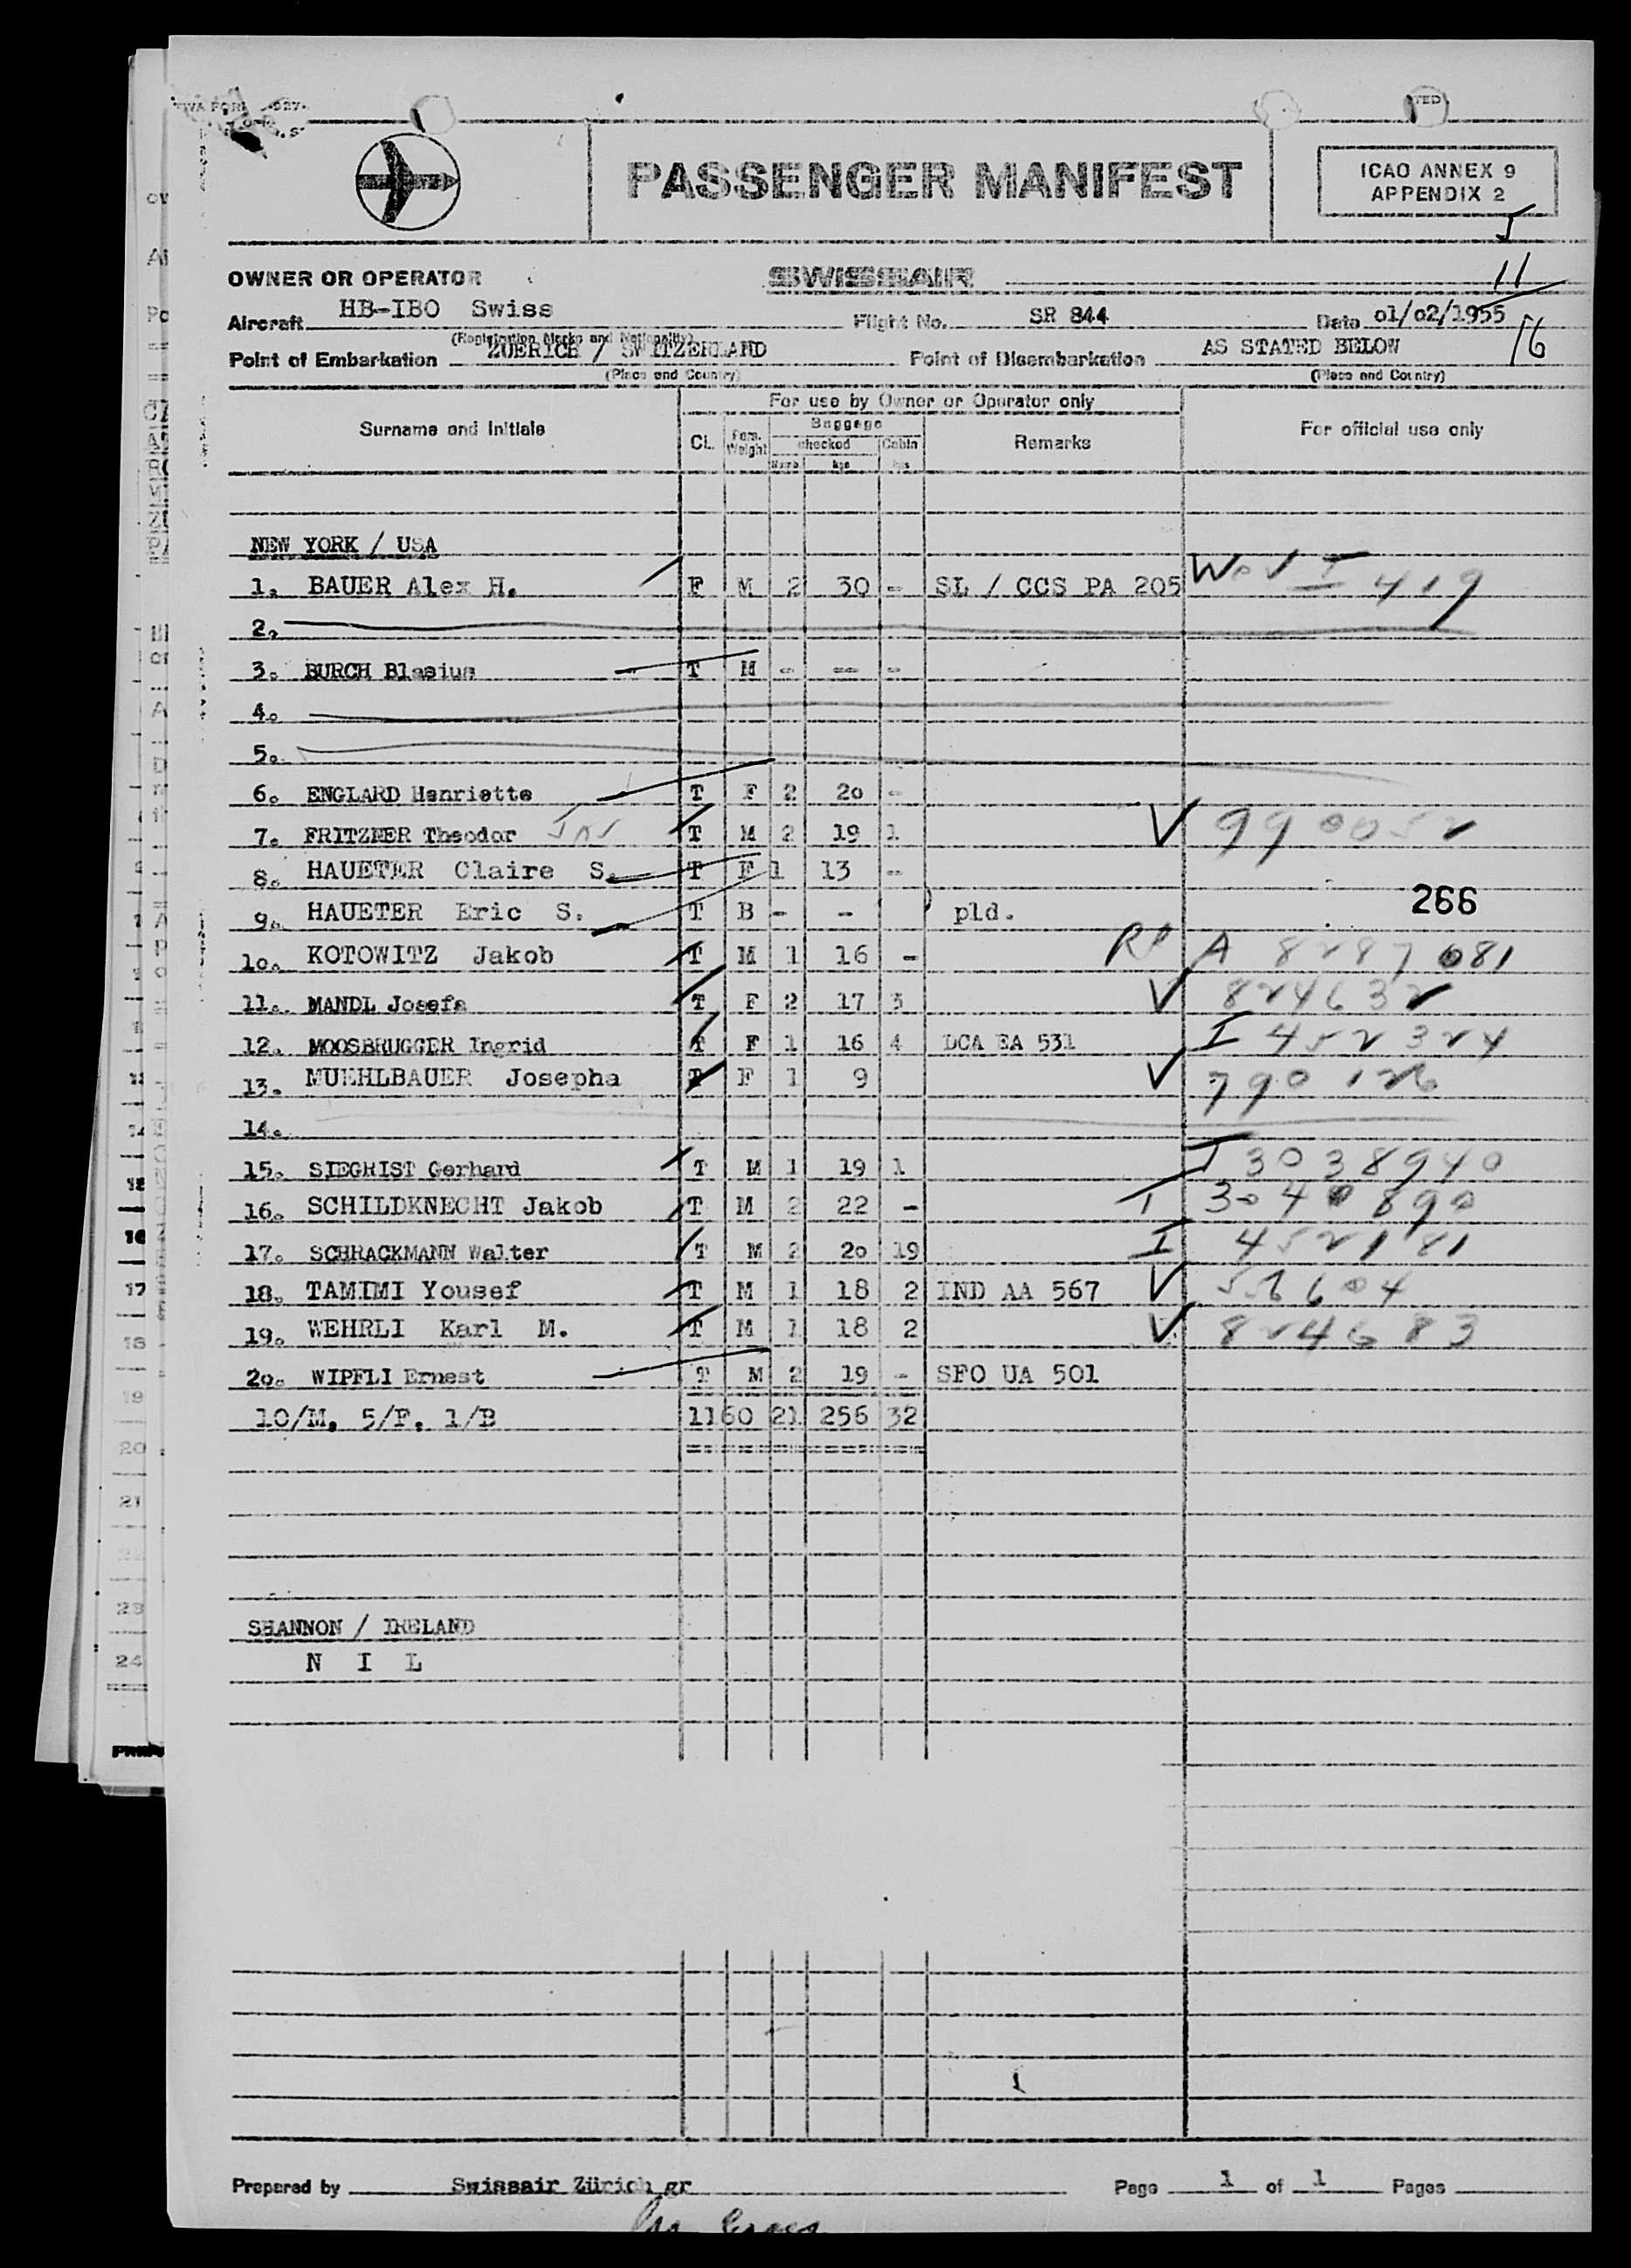 PASSENGER MANIFEST
ICAO ANNEX 9
APPENDIX 2
OWNER OR OPERATOR SWISSAIR
11
Aircraft HB-IBO Swiss Flight No. SR 844 Date o1/o2/1955
(Registration Marks and Nationality)
Point of Embarkation ZUERICH / SWITZERLAND Point of Disembarkation AS STATED BELOW 16
(Place and Country) (Place and Country)
Surname and Initials For use by Owner or Operator only For official use only
CL. Pers. Weight Baggage Remarks
checked Cabin
Numb. kgs kgs
NEW YORK / USA
1. BAUER Alex H. F M 2 30 - SL / CCS PA 205 I 419
2.
3. BURCH Blasius T M - -- -
4.
5.
6. ENGLARD Henriette T F 2 2o -
7. FRITZNER Theodor T M 2 19 1 V 990052
8. HAUETER Claire S. T F 1 13 -
9. HAUETER Eric S. T B - - pld. 266
1o. KOTOWITZ Jakob T M 1 16 - RP A 8287081
11. MANDL Josefa T F 2 17 3 V 824632
12. MOOSBRUGGER Ingrid T F 1 16 4 DCA EA 531 I 452324
13. MUEHLBAUER Josepha T F 1 9 V 790126
14.
15. SIEGRIST Gerhard T M 1 19 1 I 3038940
16. SCHILDKNECHT Jakob T M 2 22 - I 3040890
17. SCHRACKMANN Walter T M 2 2o 19 I 452181
18. TAMIMI Yousef T M 1 18 2 IND AA 567 V
19. WEHRLI Karl M. T M 1 18 2 V 824683
2o. WIPFLI Ernest T M 2 19 - SFO UA 501
10/M, 5/F, 1/B 1160 21 256 32
SHANNON / IRELAND
N I L
Prepared by Swissair Zürich gr Page 1 of 1 Pages